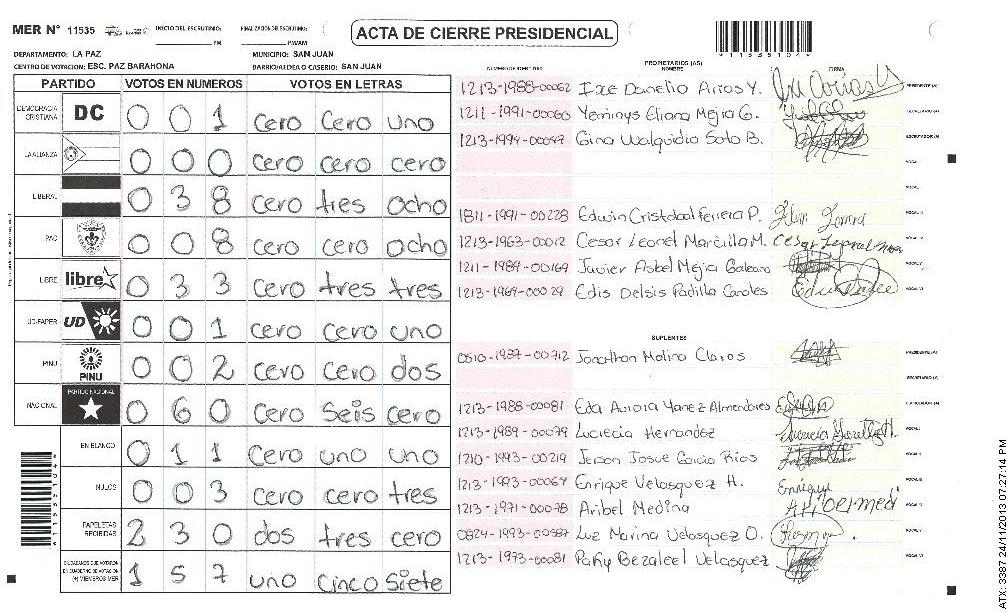 MER N° 11535
INICIO DEL ESCRUTINIO:
FINALIZACION DEL ESCRUTINIO:
PM
PM/AM
ACTA DE CIERRE PRESIDENCIAL
DEPARTAMENTO: LA PAZ
MUNICIPIO: SAN JUAN
CENTRO DE VOTACION: ESC. PAZ BARAHONA
BARRIO/ALDEA O CASERIO: SAN JUAN
PARTIDO VOTOS EN NUMEROS VOTOS EN LETRAS
DEMOCRACIA CRISTIANA DC 0 0 1 cero cero uno
LA ALIANZA 0 0 0 cero cero cero
LIBERAL 0 3 8 cero tres ocho
PAC 0 0 8 cero cero ocho
LIBRE libre 0 3 3 cero tres tres
UD-FAPER UD 0 0 1 cero cero uno
PINU PINU 0 0 2 cero cero dos
NACIONAL PARTIDO NACIONAL 0 6 0 cero seis cero
EN BLANCO 0 1 1 cero uno uno
NULOS 0 0 3 cero cero tres
PAPELETAS RECIBIDAS 2 3 0 dos tres cero
CIUDADANOS QUE VOTARON EN CUADERNO DE VOTACION (+) MIEMBROS MER 1 5 7 uno cinco siete
NUMERO DE IDENTIDAD PROPIETARIOS (AS) NOMBRE FIRMA
1213-1988-00062 PRESIDENTE (A)
1211-1991-00060 Yeminys Eliana Mejia G. SECRETARIO (A)
1213-1994-00047 Gina Walquidia Soto B. ESCRUTADOR (A)
VOCAL I
VOCAL II
1811-1991-00228 Edwin Cristobal Ferrera P. VOCAL III
1213-1963-00012 Cesar Leonel Marcilla M. VOCAL IV
1211-1989-00169 Javier Asbel Mejia Galeano VOCAL V
1213-1969-00029 Edis Delsis Padilla Canales VOCAL VI
SUPLENTES
0510-1987-00712 Jonathan Molina Claros PRESIDENTE (A)
SECRETARIO (A)
1213-1988-00081 Eda Aurora Yanez Almendares ESCRUTADOR (A)
1213-1989-00079 Lucrecia Hernandez VOCAL I
1210-1993-00219 Jerson Josue Garcia Rios VOCAL II
1213-1993-00069 Enrique Velasquez H. Enrique VOCAL III
1213-1971-00078 Aribel Medina VOCAL IV
0824-1993-00587 Luz Marina Velasquez O. VOCAL V
1213-1993-00081 Patty Bezaleel Velasquez VOCAL VI
A11535104
ATX: 3387 24/11/2013 07:27:14 PM